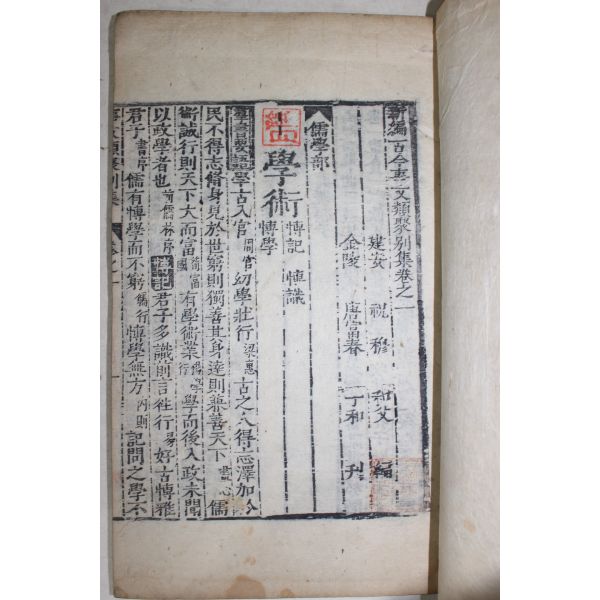 新編古今事文類聚別集卷之一
建安 祝 穆 和父 編
金陵 唐富春 丁和 刊
儒學部
學術 博記 博識
博學
羣書要語學古入官周官幼學壯行梁惠古之人得志澤加於
民不得志脩身見於世窮則獨善其身達則兼善天下盡心儒
術誠行則天下大而富荀富國有學術業行學而後入政未聞
以政學者也前儒林序君子多識則言徃行易好古博雅
君子書序儒有博學而不窮儒行博學無方內則記問之學不
事文類聚別集 卷之一